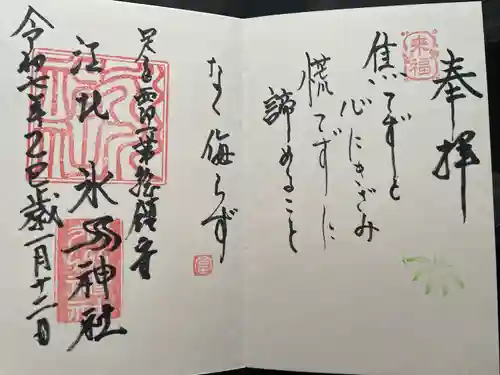 奉拝
来福
焦らずと
心にきざみ
慌てずに
諦めること
なく 侮らず
総鎮守
江北 氷川神社
令和七年乙巳歳一月十二日